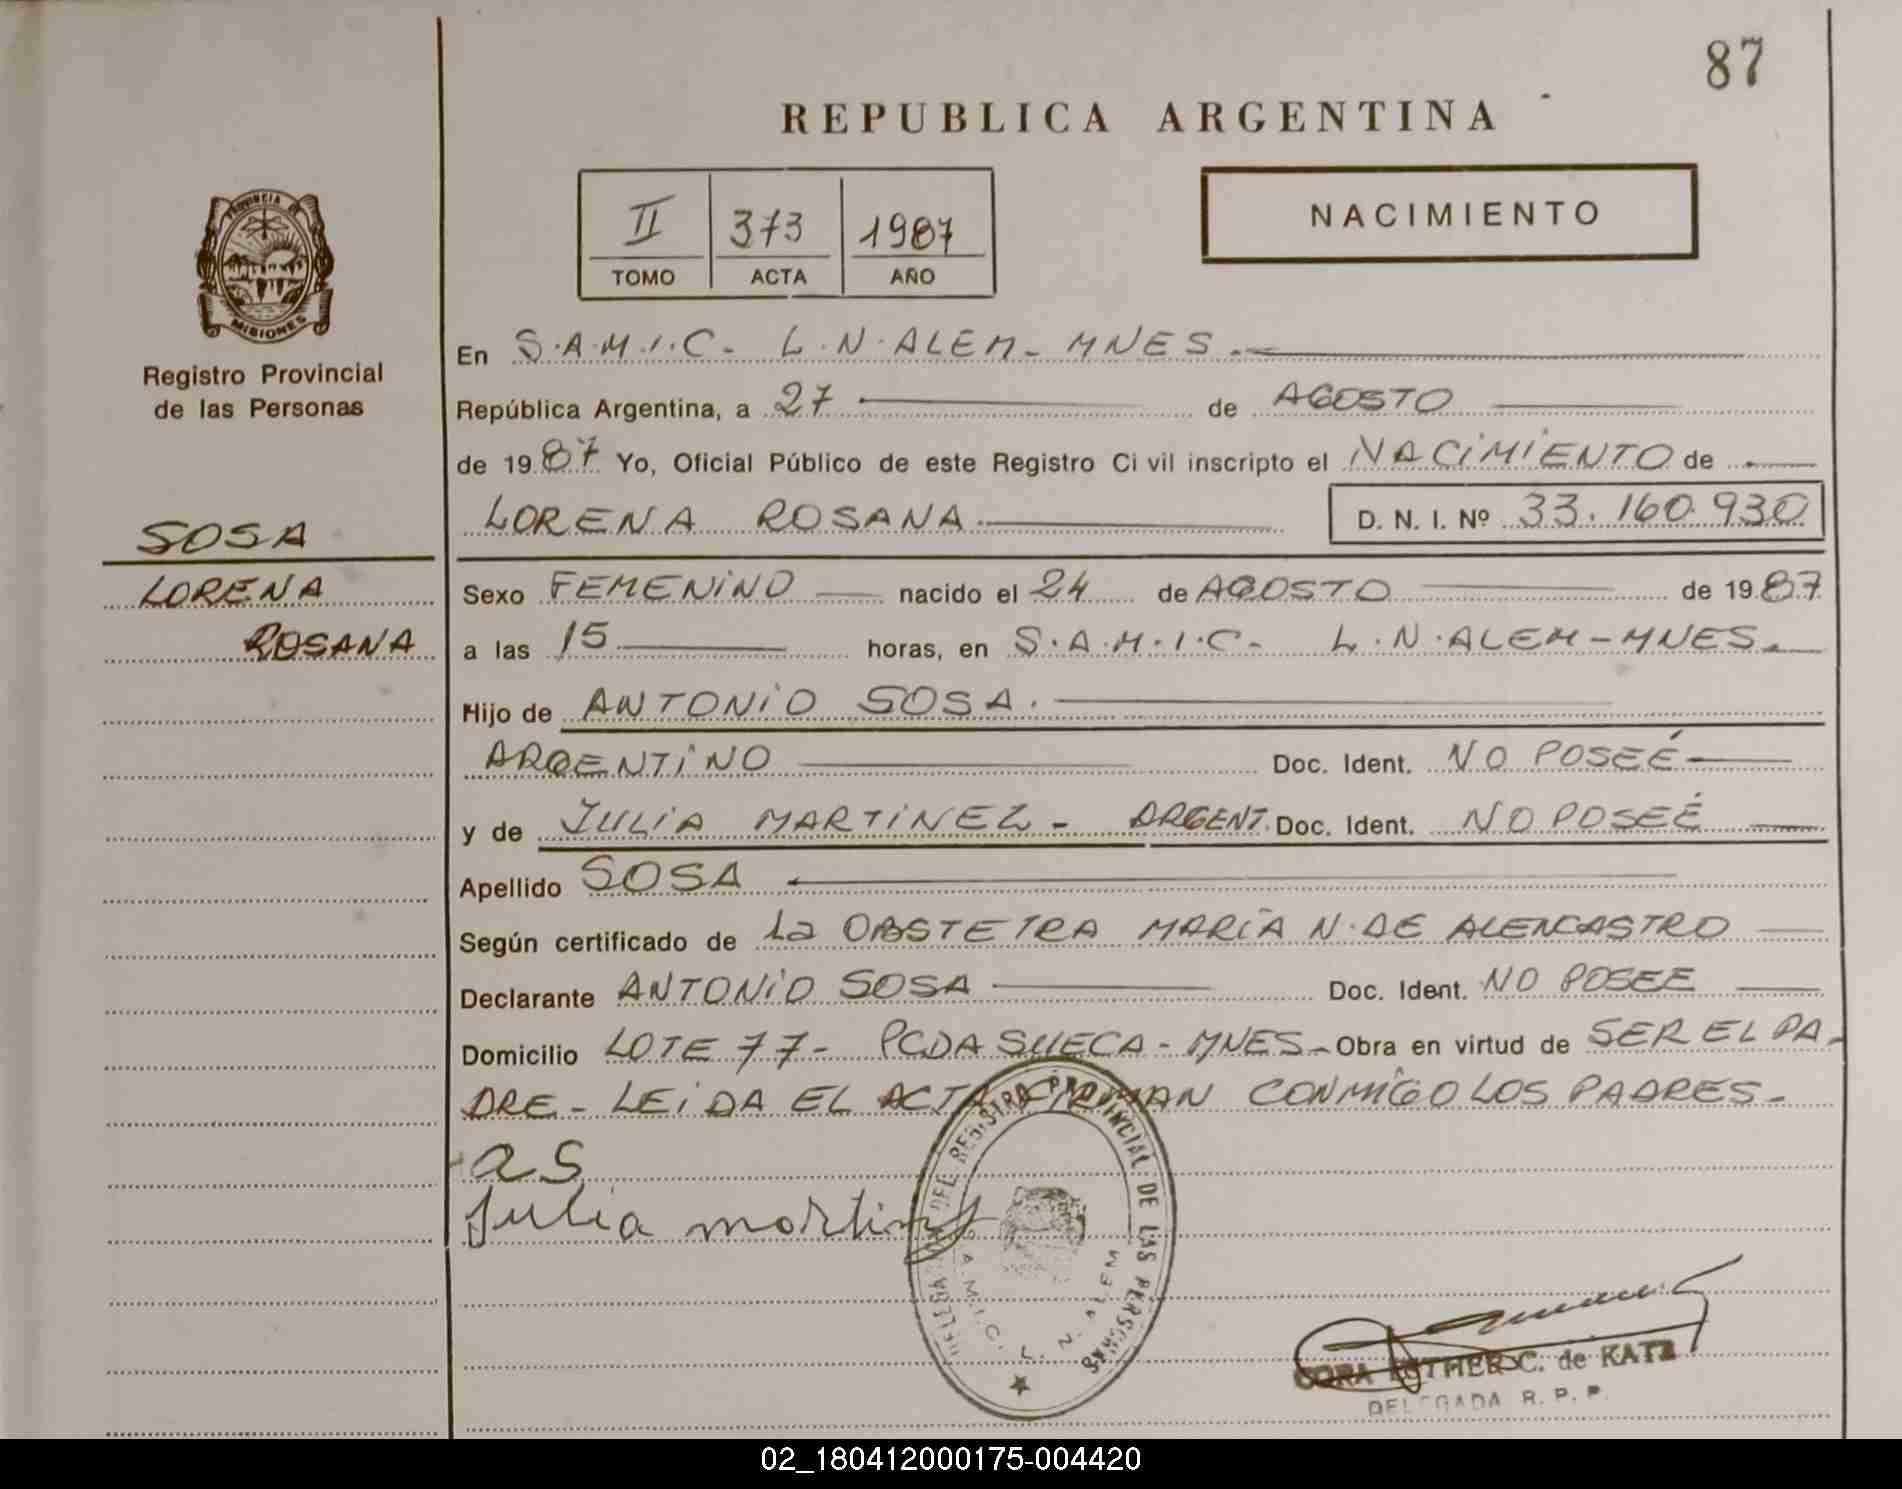 87
REPUBLICA ARGENTINA
II 373 1987
TOMO ACTA AÑO
NACIMIENTO
PROVINCIA DE
MISIONES
Registro Provincial
de las Personas
SOSA
LORENA
ROSANA
En S.A.M.I.C. - L.N.ALEM - MNES.
República Argentina, a 27 de AGOSTO
de 1987 Yo, Oficial Público de este Registro Civil inscripto el NACIMIENTO de
LORENA ROSANA D. N. I. Nº 33.160.930
Sexo FEMENINO nacido el 24 de AGOSTO de 1987
a las 15 horas, en S.A.M.I.C. - L.N.ALEM - MNES.
Hijo de ANTONIO SOSA.
ARGENTINO Doc. Ident. NO POSEÉ
y de JULIA MARTINEZ - ARGENT. Doc. Ident. NO POSEÉ
Apellido SOSA
Según certificado de La OBSTETRA MARIA N. DE ALENCASTRO
Declarante ANTONIO SOSA Doc. Ident. NO POSEE
Domicilio LOTE 77 - PCDA SUECA - MNES - Obra en virtud de SER EL PA-
DRE - LEIDA EL ACTA FIRMAN CONMIGO LOS PADRES -
a S
Julia martinez
DEL REGISTRO PROVINCIAL DE LAS PERSONAS
S.A.M.I.C. L. N. ALEM
CORA ESTHER C. de KATZ
DELEGADA R. P. P.
02_180412000175-004420